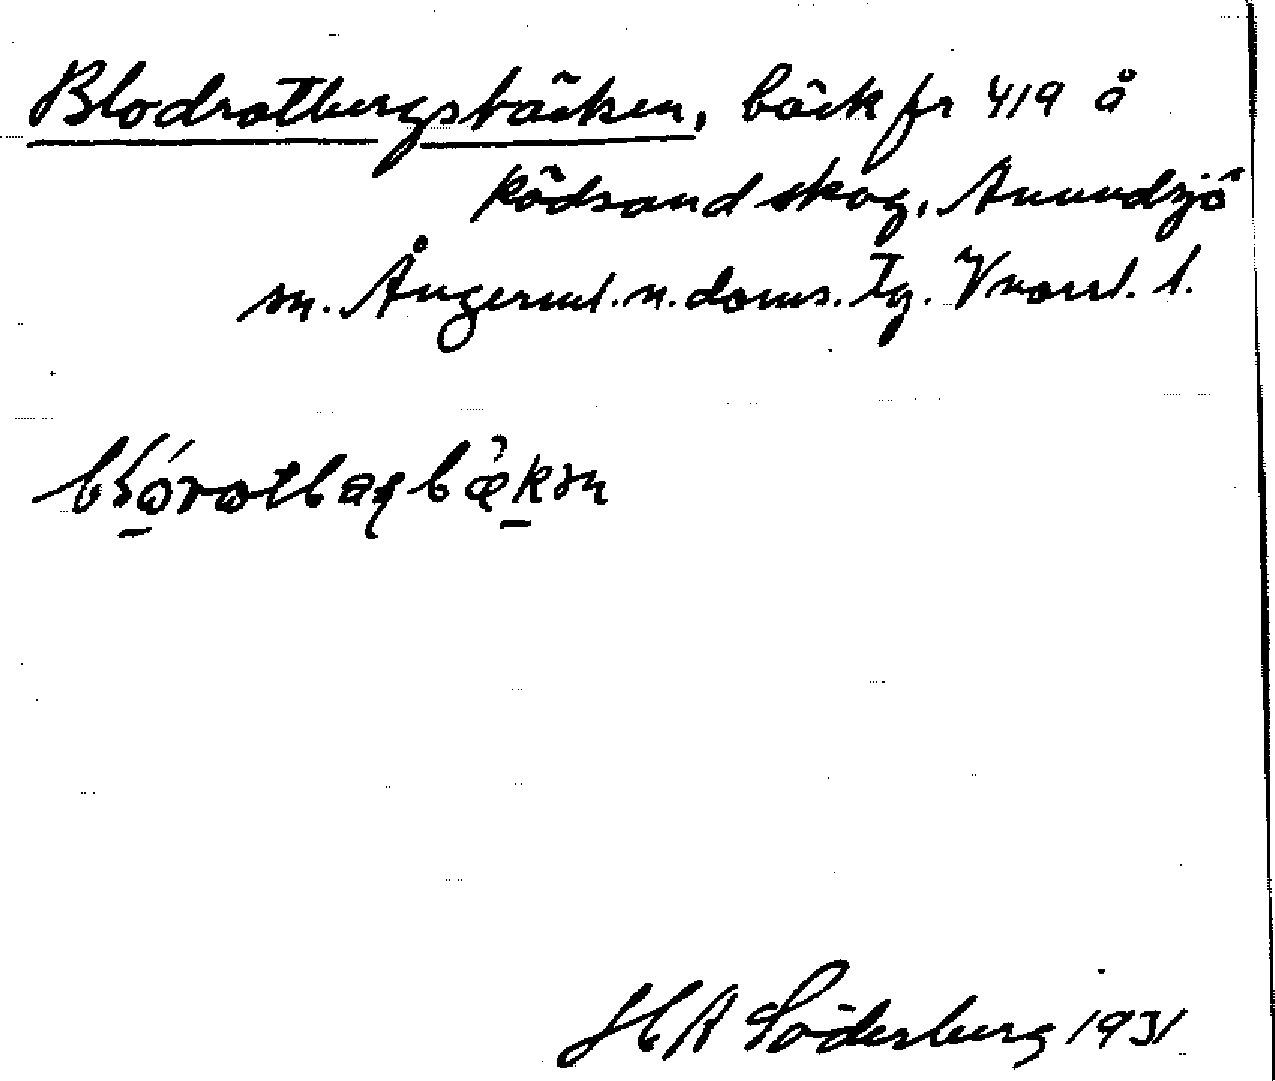 Blodrotbergsbäcken, bäck fr 419 å
Rödsand skog, Anundsjö
sn. Ångerml. n. doms. Tg. Vnorrl. l.
H A Söderberg 1931